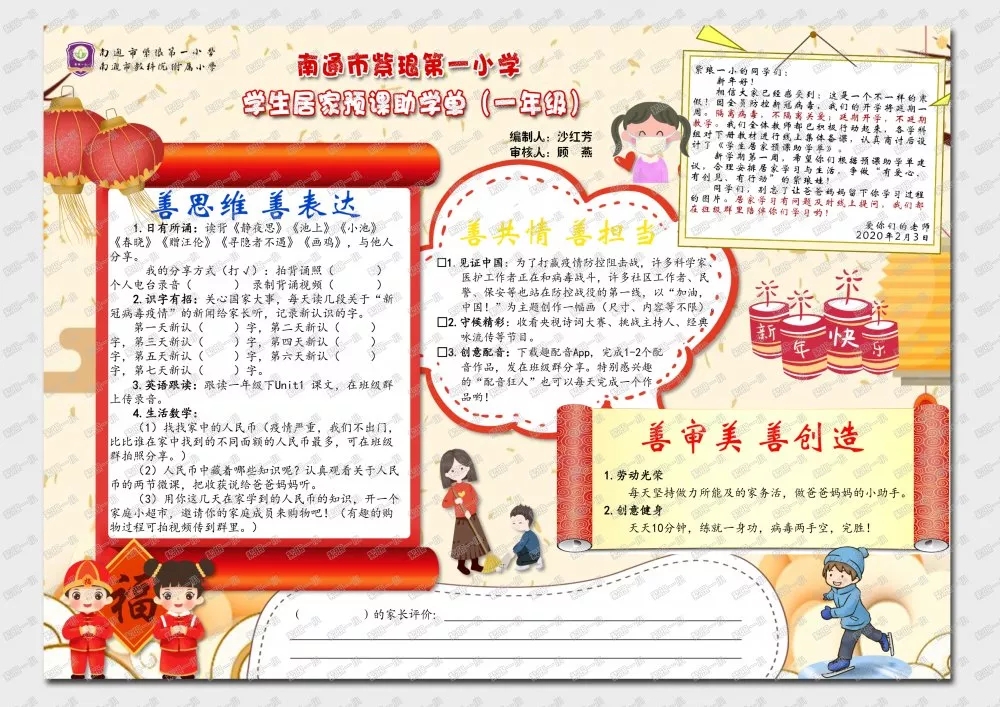 南通市紫琅第一小学
南通市教科院附属小学
南通市紫琅第一小学
学生居家预课助学单（一年级）
编制人：沙红芳
审核人：顾 燕
紫琅一小的同学们：
新年好！
相信大家已经感受到：这是一个不一样的寒
假！因全员防控新冠病毒，我们的开学将延期一
周。隔离病毒，不隔离关爱；延期开学，不延期
教学。我们全体教师都已积极行动起来，各学科
组对下册教材进行线上集体备课，认真商讨后设
计了《学生居家预课助学单》。
新学期第一周，希望你们根据预课助学单建
议，合理安排居家学习与生活，争做“有爱心、
有创见、有行动”的紫琅娃！
同学们，别忘了让爸爸妈妈留下你学习过程
的图片。居家学习有问题及时线上提问，我们都
在班级群里陪伴你们学习哟！
爱你们的老师
2020年2月3日
善思维 善表达
1.日有所诵：读背《静夜思》《池上》《小池》
《春晓》《赠汪伦》《寻隐者不遇》《画鸡》，与他人
分享。
我的分享方式（打√）：拍背诵照（ ）
个人电台录音（ ） 录制背诵视频（ ）
2.识字有招：关心国家大事，每天读几段关于“新
冠病毒疫情”的新闻给家长听，记录新认识的字。
第一天新认（ ）字，第二天新认（ ）
字，第三天新认（ ）字，第四天新认（ ）
字，第五天新认（ ）字，第六天新认（ ）
字，第七天新认（ ）字。
3.英语跟读：跟读一年级下Unit1 课文，在班级群
上传录音。
4.生活数学：
（1）找找家中的人民币（疫情严重，我们不出门，
比比谁在家中找到的不同面额的人民币最多，可在班级
群拍照分享。）
（2）人民币中藏着哪些知识呢？认真观看关于人民
币的两节微课，把收获说给爸爸妈妈听。
（3）用你这几天在家学到的人民币的知识，开一个
家庭小超市，邀请你的家庭成员来购物吧！（有趣的购
物过程可拍视频传到群里。）
善共情 善担当
□1.见证中国：为了打赢疫情防控阻击战，许多科学家、
医护工作者正在和病毒战斗，许多社区工作者、民
警、保安等也站在防控战役的第一线，以“加油，
中国！”为主题创作一幅画（尺寸、内容等不限）
□2.守候精彩：收看央视诗词大赛、挑战主持人、经典
咏流传等节目。
□3.创意配音：下载趣配音App，完成1-2个配
音作品，发在班级群分享。特别感兴趣
的“配音狂人”也可以每天完成一个作
品哟！
新年快乐
善审美 善创造
1.劳动光荣
每天坚持做力所能及的家务活，做爸爸妈妈的小助手。
2.创意健身
天天10分钟，练就一身功，病毒两手空，完胜！
福
（ ）的家长评价：